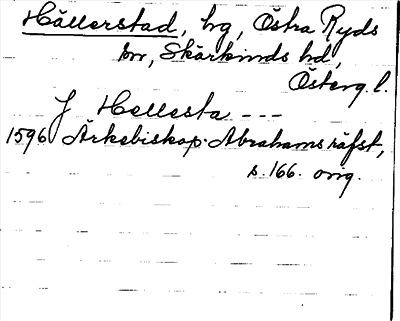 Hällerstad, hg, Östra Ryds
sn, Skärkinds hd,
Österg. l.
J Hellesta ---
1596 Ärkebiskop Abrahams räfst,
s. 166. orig.